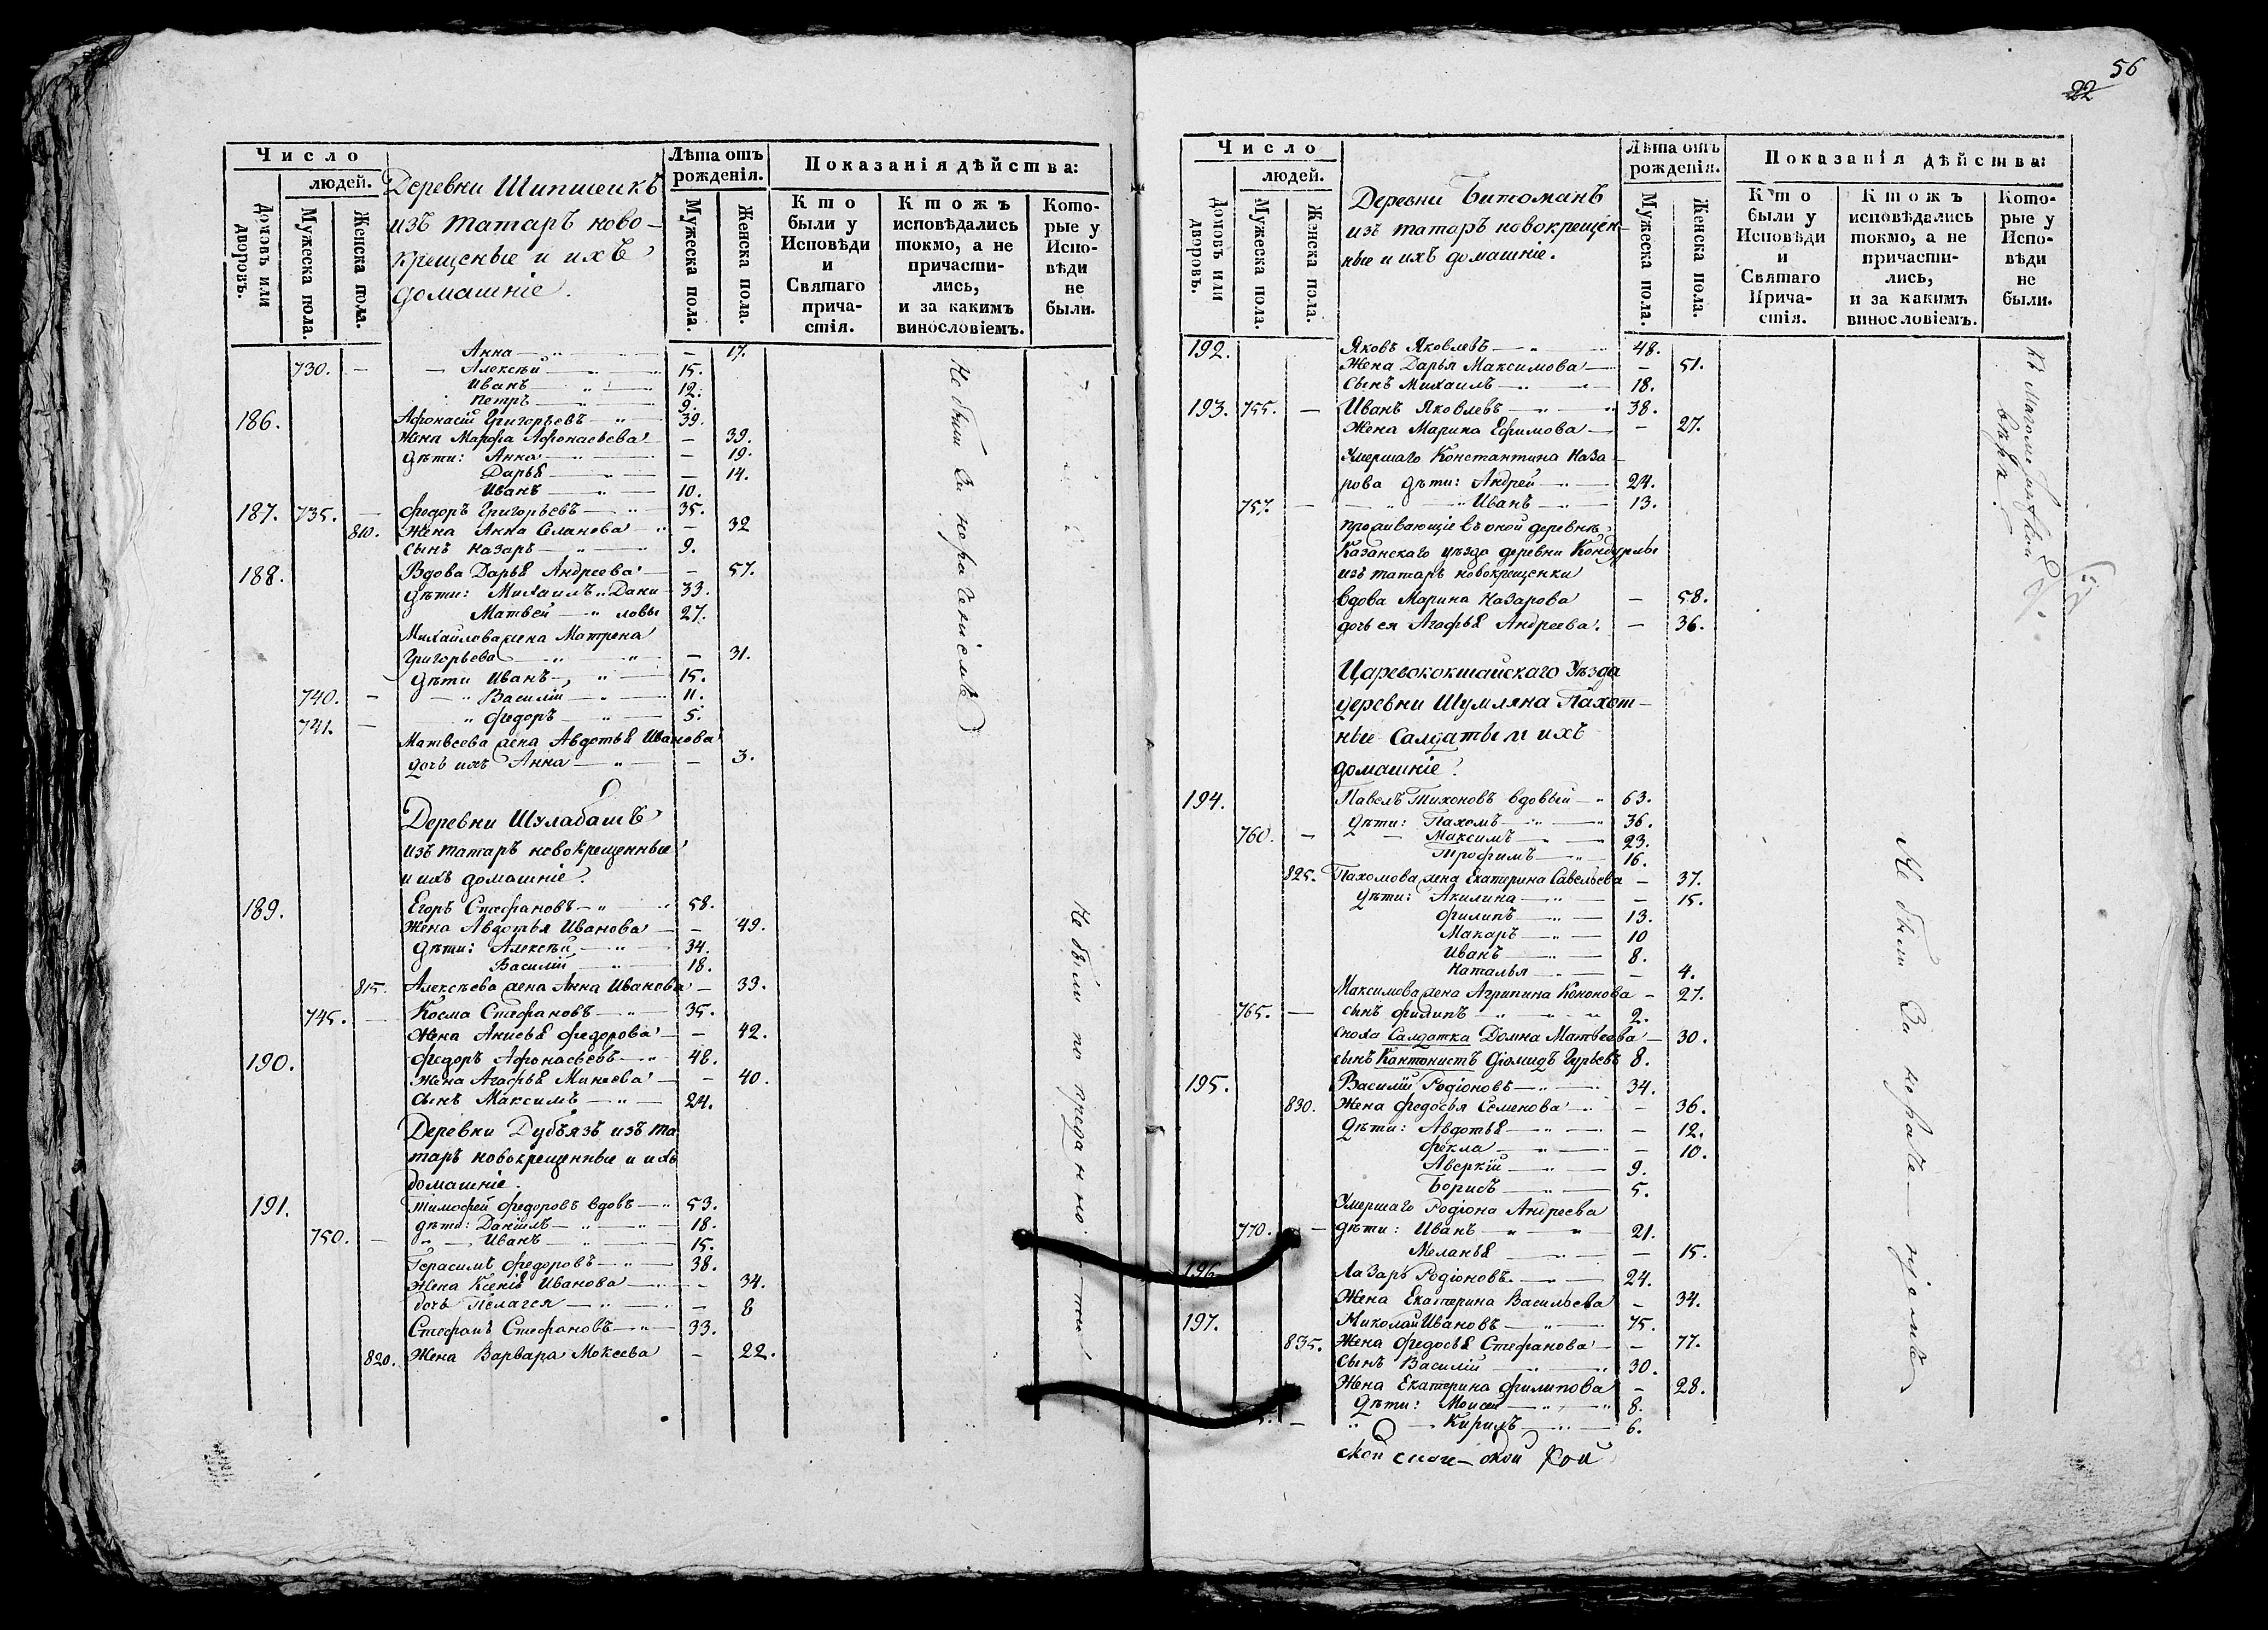 56
22
Число
людей.
Домовъ или дворовъ.
Мужеска пола.
Женска пола.
Деревни Шипшеикъ
изъ татаръ ново-
крещеные и ихъ
домашніе.
Лѣта отъ рожденія.
Мужеска пола.
Женска пола.
Показанія дѣйства:
Кто были у Исповѣди и Святаго причастія.
Ктожъ исповѣдались токмо, а не причастились, и за какимъ винословіемъ.
Которые у Исповѣди не были.
Анна — 17.
730. — Алексѣй 15.
Иванъ 12.
Петръ 9.
186. Афонасій Григорьевъ 39.
Жена Марфа Афонасьева — 39.
дѣти: Анна — 19.
Дарья — 14.
Иванъ 10.
187. 735. — Федоръ Григорьевъ 35.
810. Жена Анна Семанова — 32
сынъ Назаръ 9.
188. Вдова Дарья Андреева — 57.
дѣти: Михаилъ „ Дани 33.
Матвей „ ловы 27.
Михайлова жена Матрена
Григорьева — 31.
дѣти Иванъ 15.
740. — Василій 11.
741. — Федоръ 5.
Матвеева жена Авдотья Иванова
дочь ихъ Анна — 3.
Деревни Шулабашъ
изъ татаръ новокрещенные
и ихъ домашніе.
189. Егоръ Стефановъ 58.
Жена Авдотья Иванова — 49.
дѣти: Алексѣй 34.
Василій 18.
815. Алексѣева жена Анна Иванова — 33.
745. — Косма Стефановъ 35.
Жена Анисья Федорова — 42.
190. Федоръ Афонасьевъ 48.
Жена Агафья Минеева — 40.
Сынъ Максимъ 24.
Деревни Дубъязъ изъ та
таръ новокрещенные и ихъ
домашніе.
191. Тимофей Федоровъ вдовъ 53.
дѣти: Даніилъ 18.
750. — Иванъ 15.
Герасимъ Федоровъ 38.
Жена Ксенія Иванова — 34.
дочь Пелагея — 8
Стефанъ Стефановъ 33.
820. Жена Варвара Мокеева — 22.
Не были за нерачениемъ
Не были по
Число
людей.
Домовъ или дворовъ.
Мужеска пола.
Женска пола.
Деревни Битоманъ
изъ татаръ новокрещен-
ные и ихъ домашніе.
Лѣта отъ рожденія.
Мужеска пола.
Женска пола.
Показанія дѣйства:
Кто были у Исповѣди и Святаго Причастія.
Ктожъ исповѣдались токмо, а не причастились, и за какимъ винословіемъ.
Которые у Исповѣди не были.
192. Яковъ Яковлевъ 48.
Жена Дарья Максимова — 51.
сынъ Михаилъ 18.
193. 755. — Иванъ Яковлевъ 38.
Жена Марина Ефимова — 27.
Умершаго Константина Наза-
рова дѣти: Андрей 24.
757. — Иванъ 13.
проживающіе въ оной деревнѣ
Казанскаго уѣзда деревни Кондурлы
изъ татаръ новокрещенки
вдова Марина Назарова — 58.
дочь ея Агафья Андреева. — 36.
Царевококшайскаго Уѣзда
деревни Шумляна Пахот-
ные Салдаты и ихъ
домашніе.
194. Павелъ Тихоновъ вдовый 63.
дѣти: Пахомъ 36.
760. — Максимъ 23.
Трофимъ 16.
825. Пахомова жена Екатерина Савельева — 37.
дѣти: Акилина — 15.
Филипъ 13.
Макаръ 10
Иванъ 8.
Наталья — 4.
Максимова жена Агрипина Кононова — 27.
765. — сынъ Филипъ 2.
сноха Салдатка Домна Матвеева — 30.
сынъ Кантонистъ Діомидъ Гурьевъ 8.
195. Василій Родіоновъ 34.
830. Жена Федосья Семенова — 36.
Дѣти: Авдотья — 12.
Фекла — 10.
Аверкій 9.
Борисъ 5.
Умершаго Родіона Андреева
770. — дѣти: Иванъ 21.
Меланья — 15.
196. Лазарь Родіоновъ 24.
Жена Екатерина Васильева — 34.
197. Николай Ивановъ 75.
835. Жена Федосья Стефанова — 77.
Сынъ Василій 30.
Жена Екатерина Филипова — 28.
Дѣти: Моисей 8.
Кирилъ 6.
Не были за